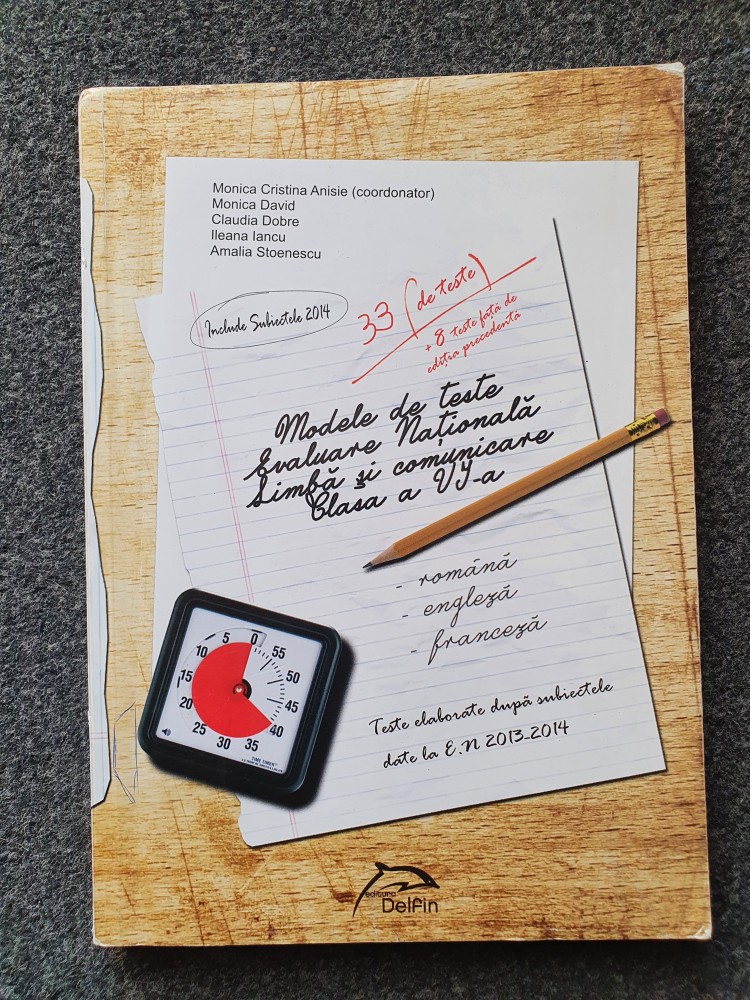 Monica Cristina Anisie (coordonator)
Monica David
Claudia Dobre
Ileana Iancu
Amalia Stoenescu
Include Subiectele 2014
33 (de teste)
+ 8 teste față de
ediția precedentă
Modele de teste
Evaluare Națională
Limbă și comunicare
Clasa a VI-a
- română
- engleză
- franceză
0
5
55
10
50
15
45
20
40
25
30
35
TIME TIMER®
Teste elaborate după subiectele
date la E.N 2013-2014
editura
Delfin